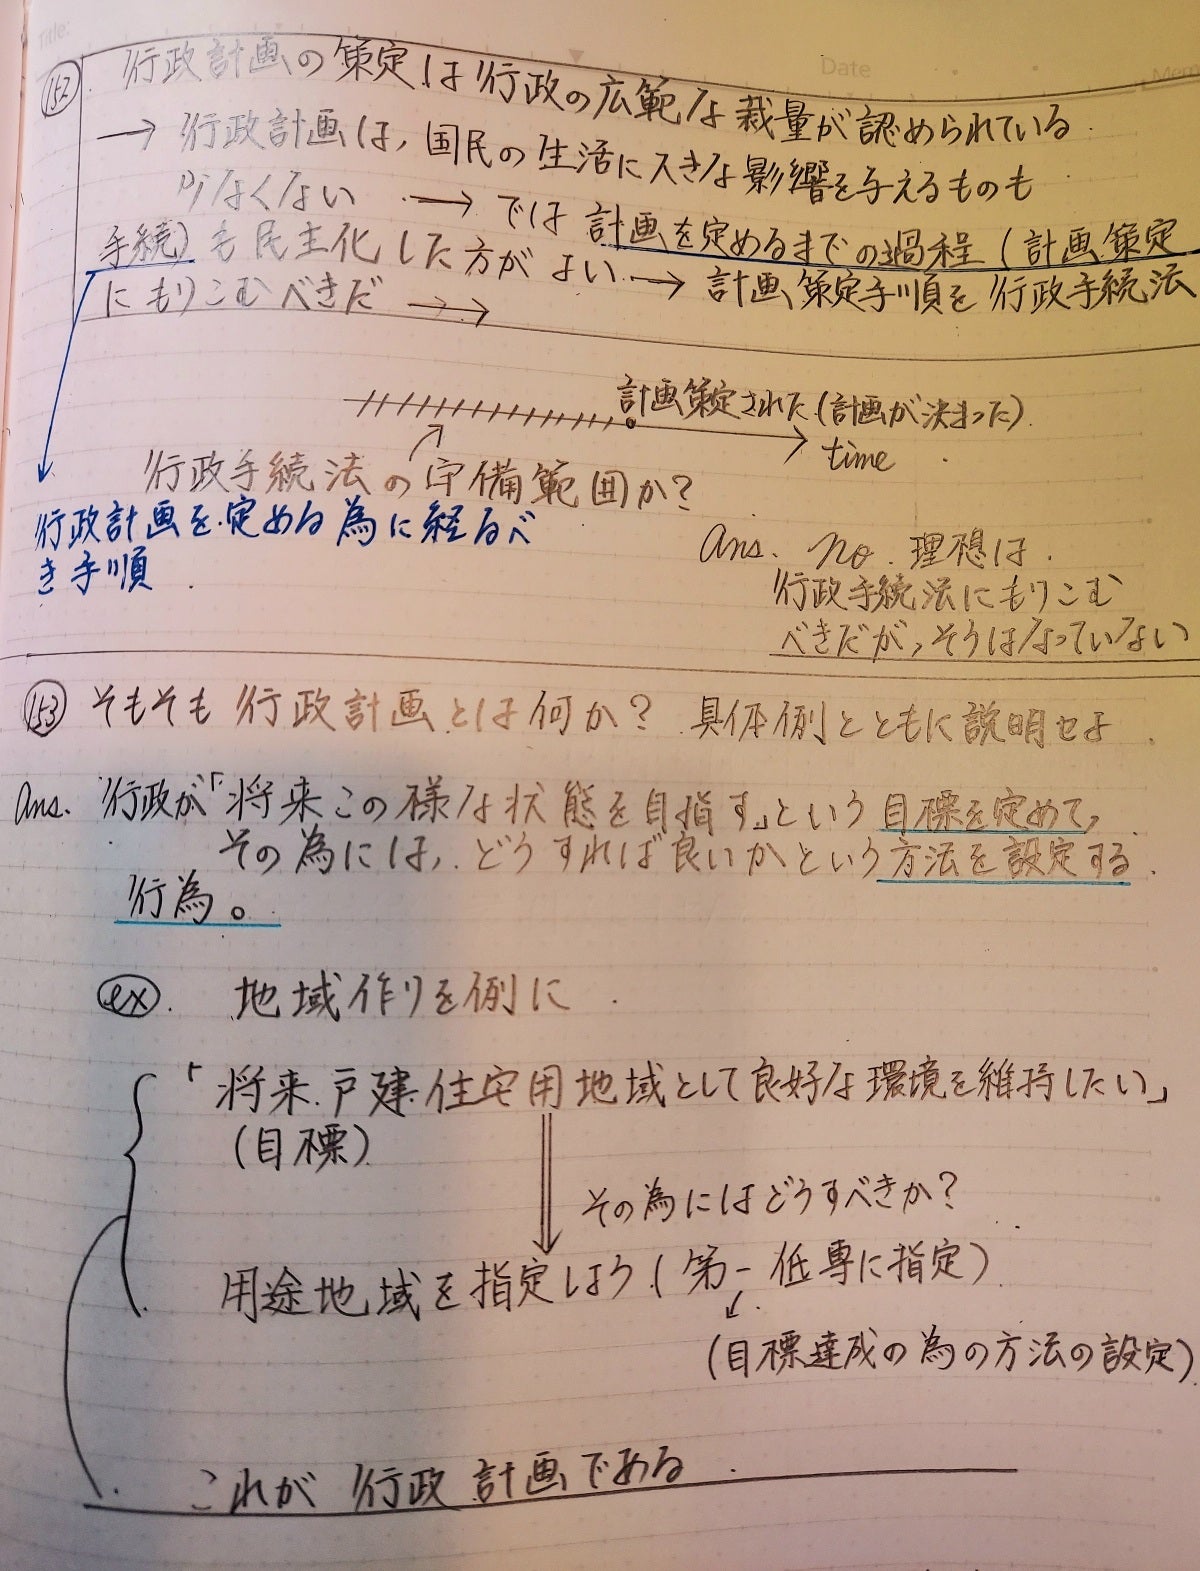 Title:
Date
Memo
152 行政計画の策定は行政の広範な裁量が認められている
→ 行政計画は,国民の生活に大きな影響を与えるものも
少なくない → では計画を定めるまでの過程(計画策定
手続)も民主化した方がよい → 計画策定手順を行政手続法
にもりこむべきだ →→
計画策定された(計画が決まった)
time
行政手続法の守備範囲か?
行政計画を定める為に経るべ
き手順
Ans. No. 理想は
行政手続法にもりこむ
べきだが,そうはなっていない
153 そもそも行政計画とは何か? 具体例とともに説明せよ
Ans. 行政が「将来この様な状態を目指す」という目標を定めて,
その為には,どうすれば良いかという方法を設定する
行為。
ex. 地域作りを例に
「将来戸建住宅用地域として良好な環境を維持したい」
(目標)
その為にはどうすべきか?
用途地域を指定しよう(第一低専に指定)
(目標達成の為の方法の設定)
これが行政計画である